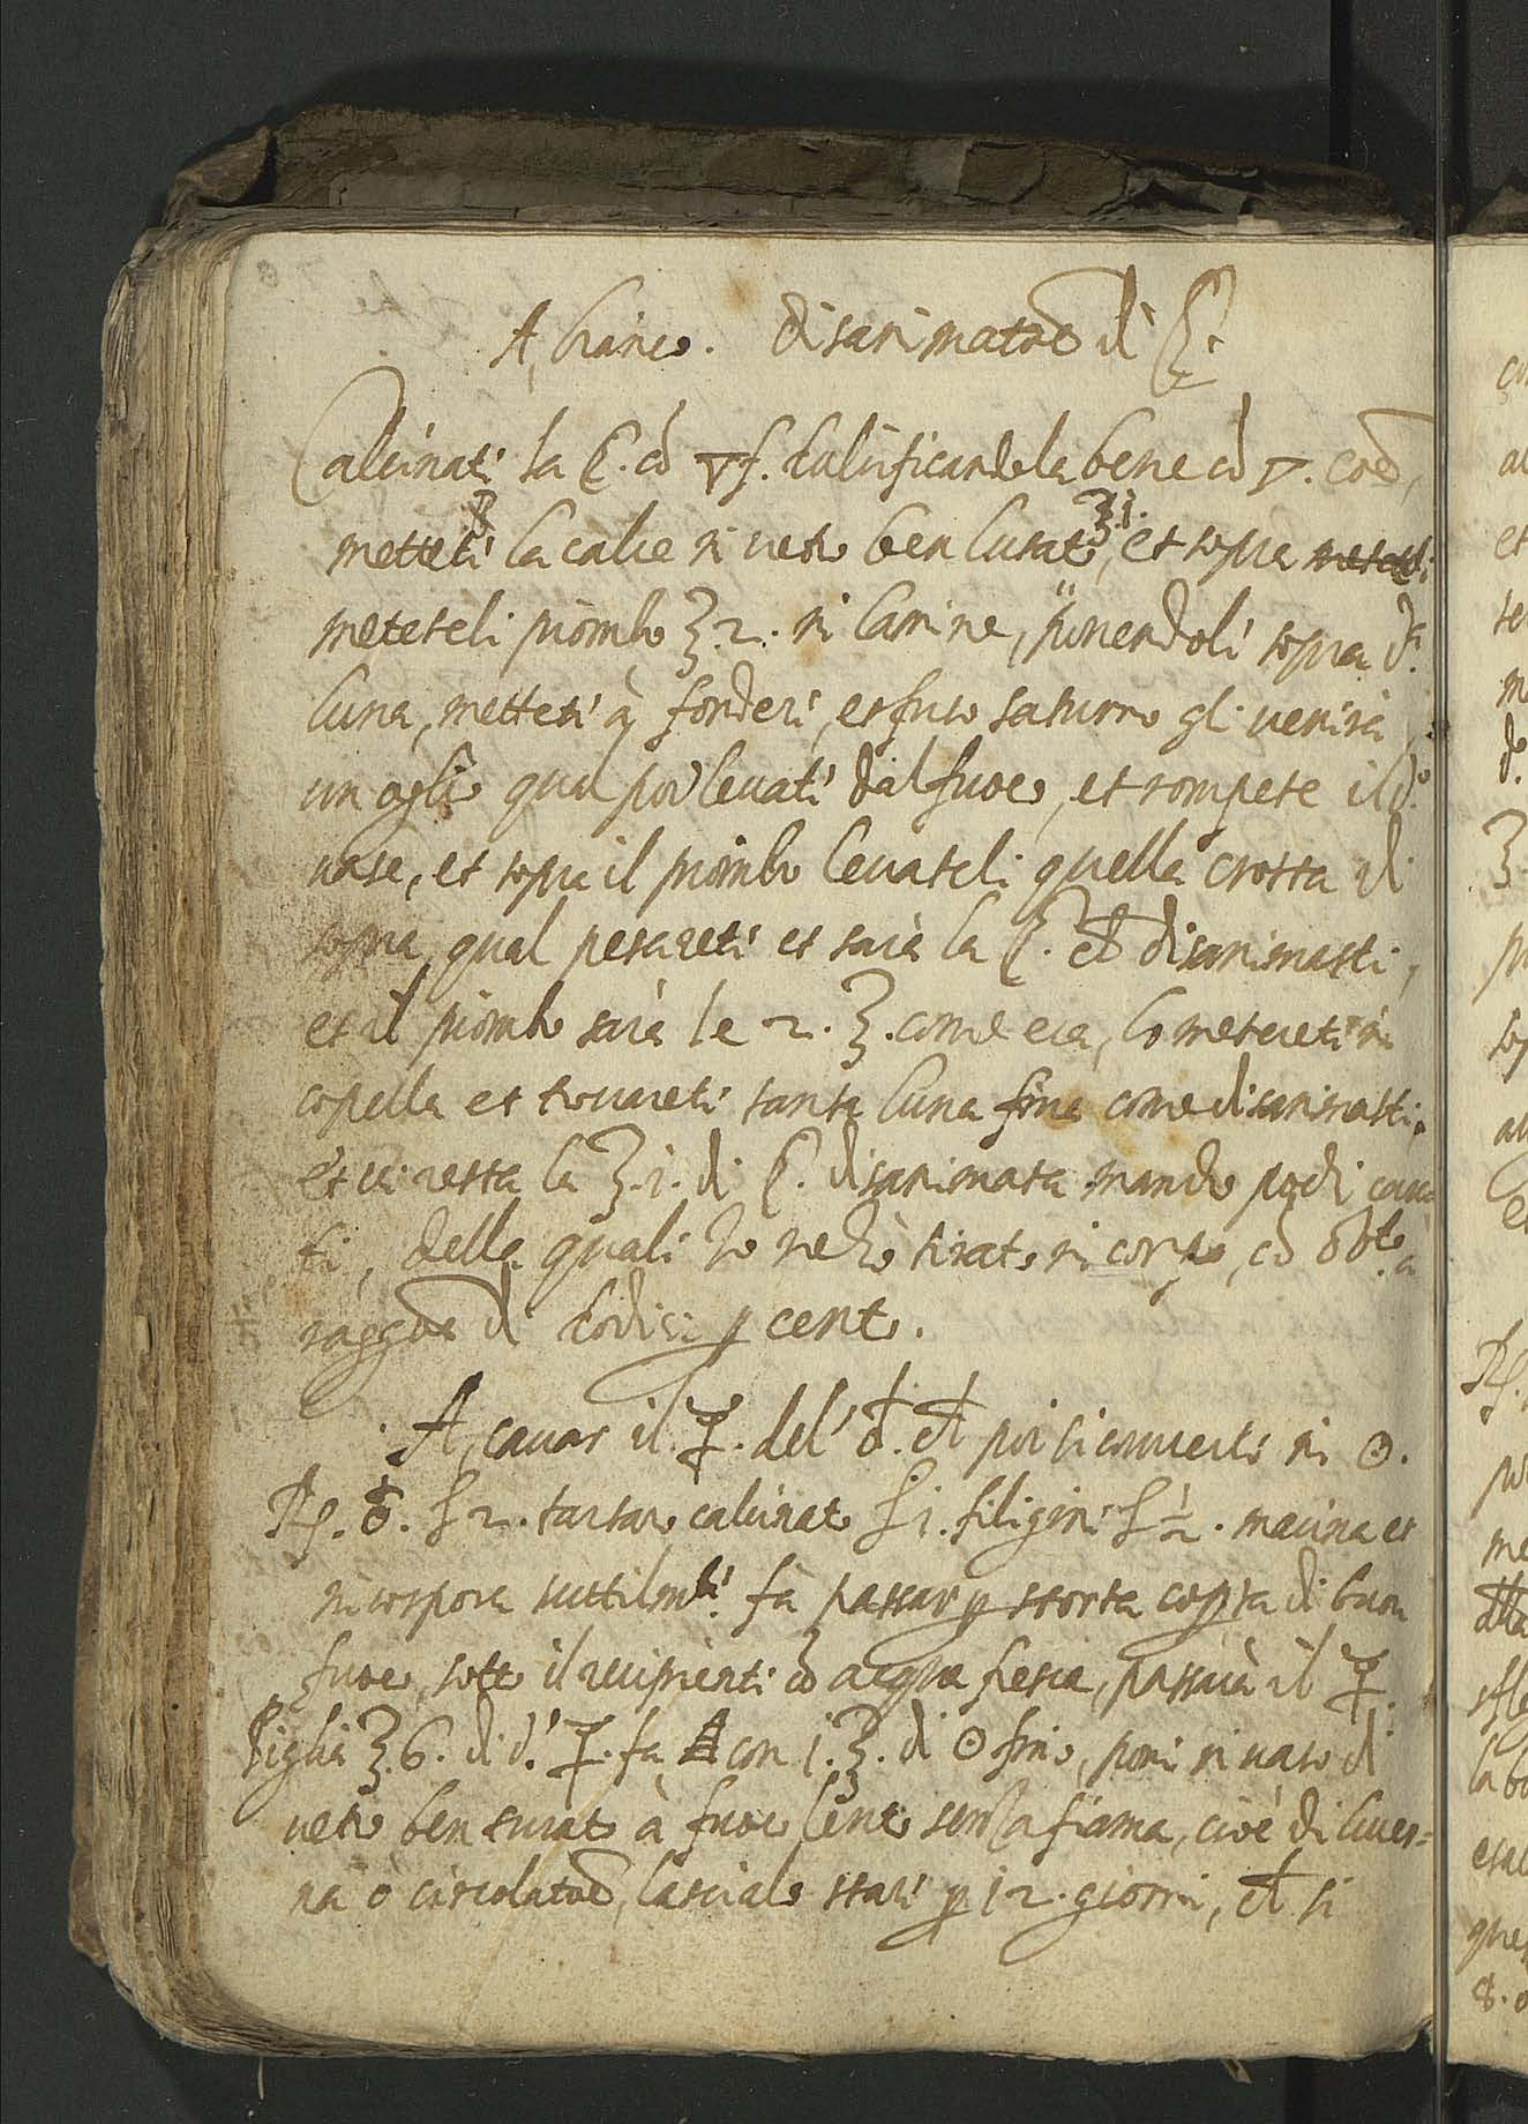 A, bianco. disanimatoe di ☾.
Calcinati la ☾. cō ▽f. dulcificandola bene cō ▽. coē,
metteti la calce in vetro ben lutato, ℥.i. et sopra
meteteli piombo ℥.2. in lamine, ponendoli sopra d.ª
luna, metteti à fonderi, et fuso saturno gli venirà
un oglio qual poi levati dal fuoco, et rompete il d.º
vase, et sopra il piombo levateli quella crosta di
sopra, qual pesareti et sarà la ☾. disanimasti,
et il piombo sarà le 2. ℥. come era, lo metereti in
copella et trovareti tanta luna fina come disanimasti.
et vi resta la ℥.i. di ☾. disanimata
ti, della quali Io ne hò tirato in corpo, cō
raggoē di dodisi p cento.
A, cavar il ☿. del' ♁. poi si converti in ☉.
Rp. ♁. 2. tartaro calcinato i. filigini ½. macina et
incorpora suttilmti. fà passar p storta copta di buon
fuoco, sotto il recipienti cō acqua fresca, passarà il ☿.
Piglia ℥.6. di d.º ☿. fa con i.℥. di ☉ fino, poni in vaso di
vetro ben turato à fuoco lento senza fiama, cioè di lucer=
na ò circolatoē, lascialo stari p 12. giorni, si